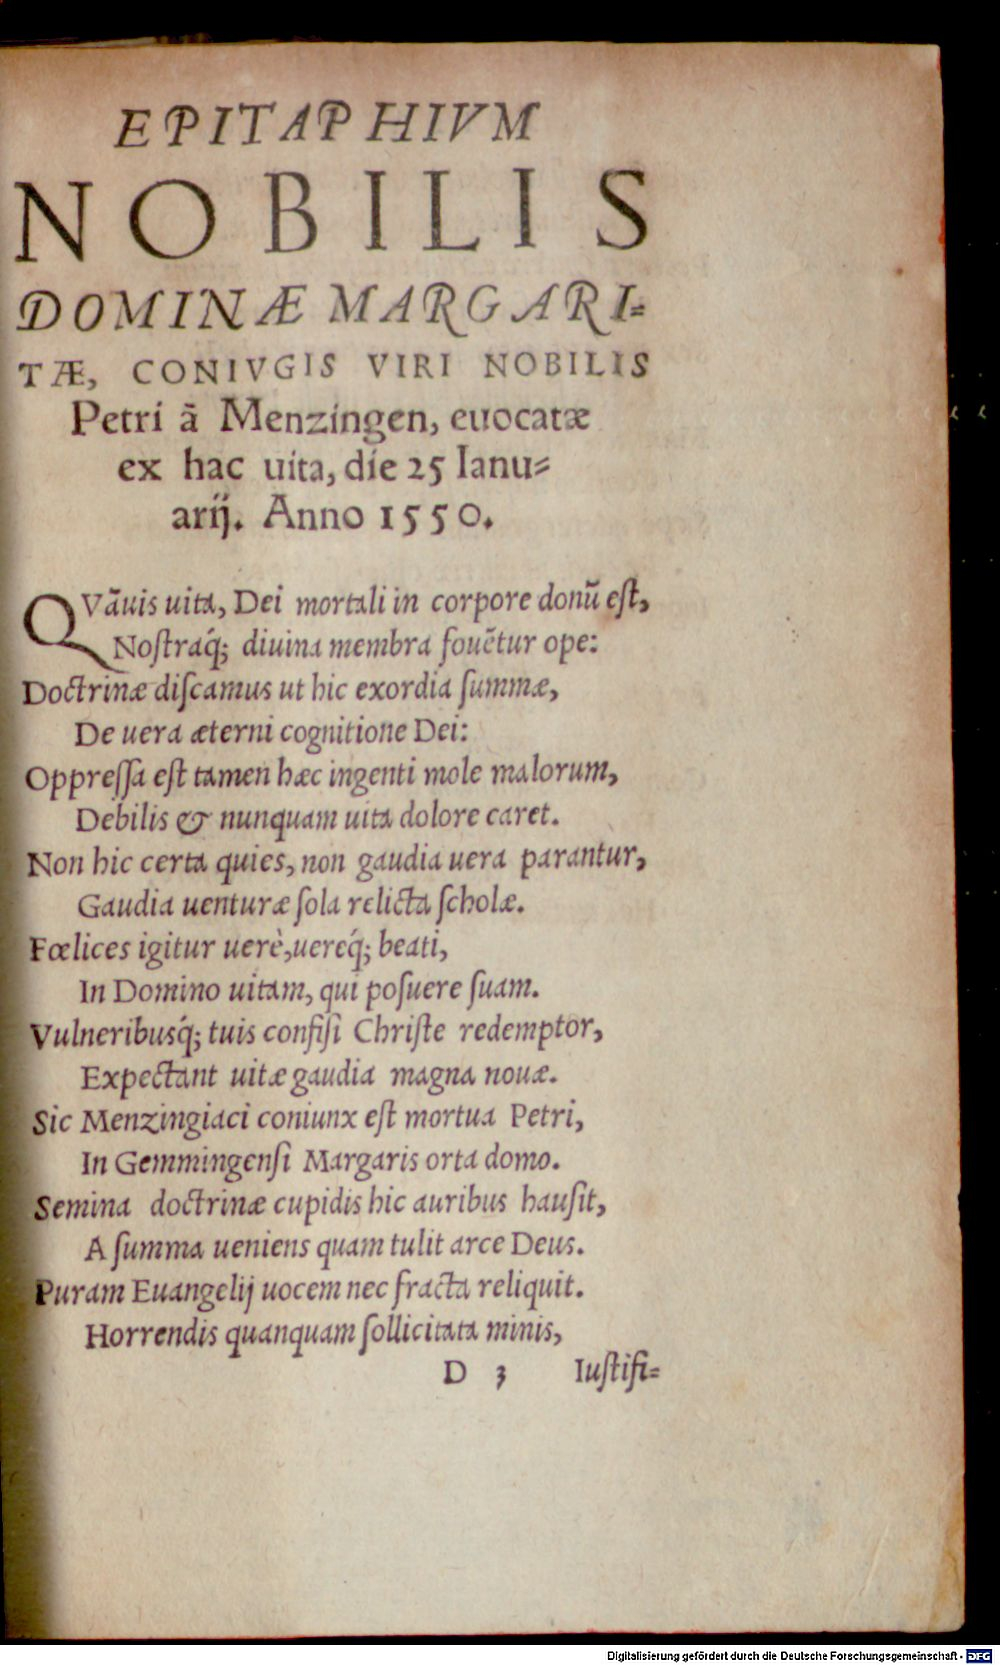 EPITAPHIVM
NOBILIS
DOMINÆ MARGARI-
TÆ, CONIVGIS VIRI NOBILIS
Petri ā Menzingen, euocatæ
ex hac uita, die 25 Ianu-
arij. Anno 1550.
QVāuis uita, Dei mortali in corpore donū est,
Nostraq́; diuina membra fouētur ope:
Doctrinæ discamus ut hic exordia summæ,
De uera æterni cognitione Dei:
Oppressa est tamen hæc ingenti mole malorum,
Debilis & nunquam uita dolore caret.
Non hic certa quies, non gaudia uera parantur,
Gaudia uenturæ sola relicta scholæ.
Fœlices igitur uerè, uereq́; beati,
In Domino uitam, qui posuere suam.
Vulneribusq́; tuis confisi Christe redemptor,
Expectant uitæ gaudia magna nouæ.
Sic Menzingiaci coniunx est mortua Petri,
In Gemmingensi Margaris orta domo.
Semina doctrinæ cupidis hic auribus hausit,
A summa ueniens quam tulit arce Deus.
Puram Euangelij uocem nec fracta reliquit.
Horrendis quanquam sollicitata minis,
D 3 Iustifi-
Digitalisierung gefördert durch die Deutsche Forschungsgemeinschaft - DFG